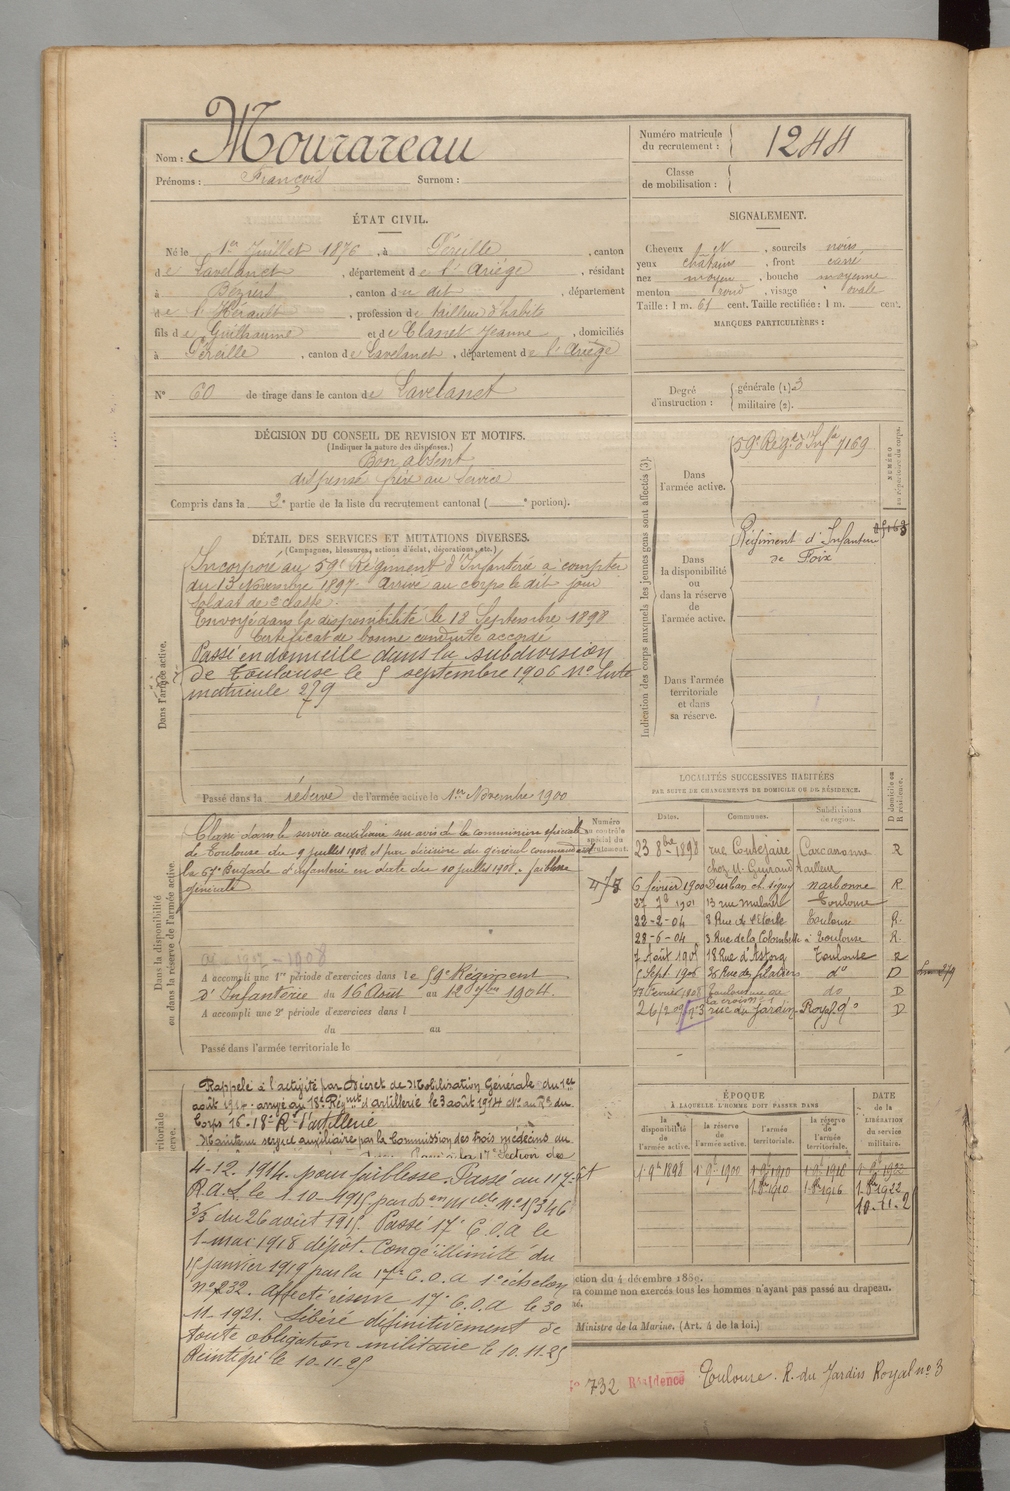 Nom : Mourareau
Prénoms : François Surnom :
Numéro matricule du recrutement : 1244
Classe de mobilisation :
ÉTAT CIVIL.
Né le 1er Juillet 1876, à Péreille, canton
de Lavelanet, département de l'Ariège, résidant
à Béziers, canton du dit, département
de l'Hérault, profession de tailleur d'habits
fils de Guillaume et de Clanet Jeanne, domiciliés
à Péreille, canton de Lavelanet, département de l'Ariège
N° 60 de tirage dans le canton de Lavelanet
SIGNALEMENT.
Cheveux N, sourcils noirs
yeux châtains, front carré
nez moyen, bouche moyenne
menton rond, visage ovale
Taille : 1 m. 61 cent. Taille rectifiée : 1 m. cent.
MARQUES PARTICULIÈRES :
Degré d'instruction : générale (1) 3
militaire (2).
DÉCISION DU CONSEIL DE REVISION ET MOTIFS.
(Indiquer la nature des dispenses.)
Bon absent
dispensé frère au service
Compris dans la 2e partie de la liste du recrutement cantonal ( e portion).
DÉTAIL DES SERVICES ET MUTATIONS DIVERSES.
(Campagnes, blessures, actions d'éclat, décorations, etc.)
Dans l'armée active.
Incorporé au 59e Régiment d'Infanterie à compter
du 13 Novembre 1897. Arrivé au corps le dit jour
soldat de 2e classe.
Envoyé dans la disponibilité le 18 Septembre 1898
Certificat de bonne conduite accordé
Passé en domicile dans la subdivision
de Toulouse le 5 septembre 1906 No Liste
matricule 279
Passé dans la réserve de l'armée active le 1er Novembre 1900
Indication des corps auxquels les jeunes gens sont affectés (3).
NUMÉRO au répertoire du corps.
Dans l'armée active.
59e Régt d'Infie 7169
Dans la disponibilité ou dans la réserve de l'armée active.
Régiment d'Infanterie
de Foix
Dans l'armée territoriale et dans sa réserve.
Dans la disponibilité ou dans la réserve de l'armée active.
Numéro au contrôle spécial du recrutement.
Classé dans le service auxiliaire sur avis de la commission spéciale
de Toulouse du 9 juillet 1908 et par décision du général commandant
la 67e Brigade d'Infanterie en date du 10 juillet 1908. faiblesse
générale
A accompli une 1re période d'exercices dans le 59e Régiment
d'Infanterie du 16 Août au 12 7bre 1904.
A accompli une 2e période d'exercices dans l
du au
Passé dans l'armée territoriale le
LOCALITÉS SUCCESSIVES HABITÉES
PAR SUITE DE CHANGEMENTS DE DOMICILE OU DE RÉSIDENCE.
D domicile ou R résidence.
Dates. Communes. Subdivisions de région.
23 8bre 1898 rue Coutejaire Carcassonne R
chez M. Guiraud tailleur
6 février 1900 narbonne R
27 7b 1901 13 rue Toulouse
22-2-04 Toulouse R.
28-6-04 3 Rue de la Colombette à Toulouse R.
7 Août 1905 18 Rue d'Astorg Toulouse R
5 Sept. 1906 Rue des do D
17 Février 1908 Toulouse rue de la croix n° 1 do D
26/2 09 n° 3 rue du Jardin-Royal do D
Rappelé à l'activité par Décret de Mobilisation Générale du 1er
août 1914. arrivé au 18e Régmt d'artillerie le 3 août 1914 No au Re du
Corps 16. 18e Rt d'artillerie
Maintenu service auxiliaire par la Commission des trois médecins du
4-12. 1914. pour faiblesse. Passé au 117e Rt
R.A.L le 1-10-1915 par Don Mlle No 15346
3/3 du 26 août 1915. Passé 17e C.O.A le
1 mai 1918 dépôt. Congé illimité du
15 janvier 1919 par la 17e C.O.A 1e échelon
No 232. Affecté réserve 17e C.O.A le 30
11-1921. Libéré définitivement de
toute obligation militaire le 10.11.25
Réintégré le 10-11-25
ÉPOQUE
À LAQUELLE L'HOMME DOIT PASSER DANS
DATE de la LIBÉRATION du service militaire.
la disponibilité de l'armée active. la réserve de l'armée active. l'armée territoriale. la réserve de l'armée territoriale.
1-9b 1898 1-9b 1900 1-9b 1910 1-9b 1916 1-9b 1922
1-8bre 1910 1-8bre 1916 1-8bre 1922
10-11-25
ction du 4 décembre 1889.
ra comme non exercés tous les hommes n'ayant pas passé au drapeau.
Ministre de la Marine. (Art. 4 de la loi.)
732 Résidence Toulouse. R. du Jardin Royal no 3